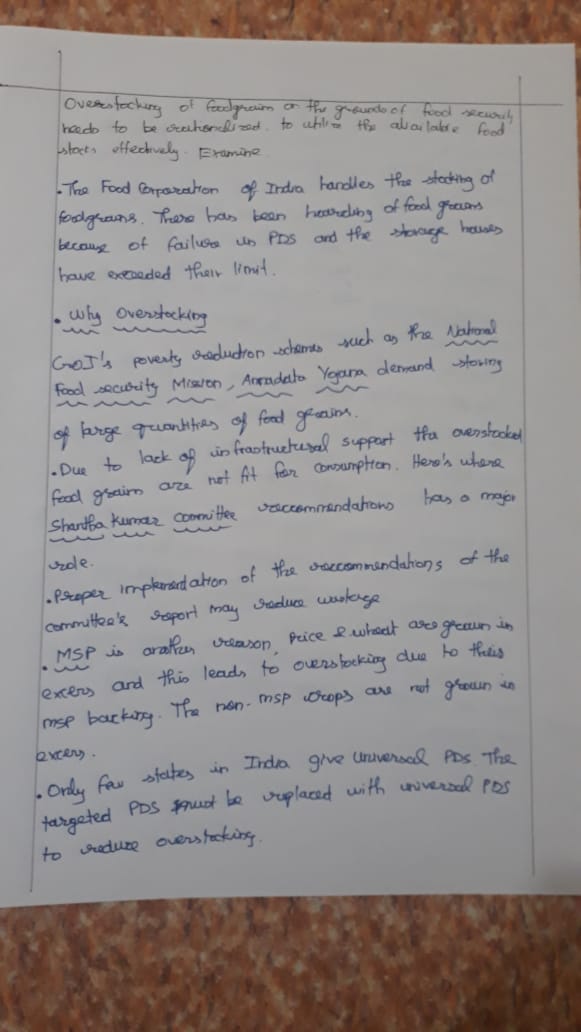 Overstocking of foodgrain on the grounds of food security
needs to be rationalized. to utilise the available food
stocks effectively. Examine
. The Food Corporation of India handles the stocking of
foodgrains. There has been hoarding of food grains
because of failure in PDS and the storage houses
have exceeded their limit.
. Why Overstocking
GoI's poverty reduction schemes such as the National
Food security Mission, Annadata Yojana demand storing
of large quantities of food grains.
. Due to lack of infrastructural support the overstocked
food grains are not fit for consumption. Here's where
Shantha Kumar committee reccommendations has a major
role.
. Proper implementation of the reccommendations of the
committee's report may reduce wastage
. MSP is another reason, Rice & wheat are grown in
excess and this leads to overstocking due to their
msp backing. The non-msp crops are not grown in
excess.
. Only few states in India give universal PDS. The
targeted PDS must be replaced with universal PDS
to reduce overstocking.